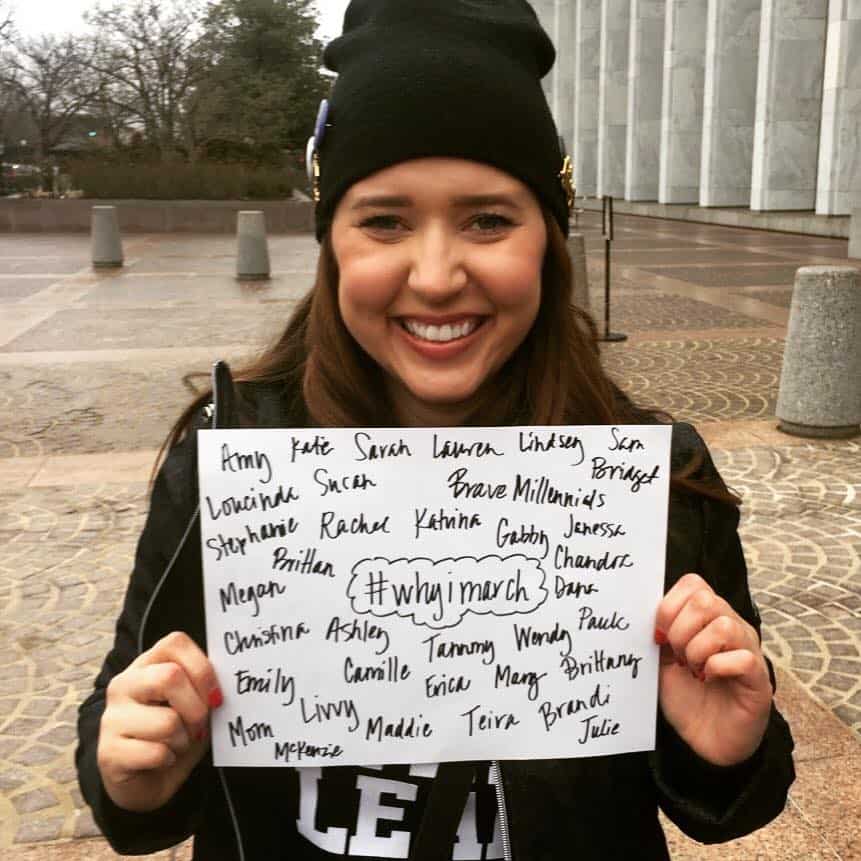 Amy Katie Sarah Lauren Lindsey Sam
Bridget
Loucinda Susan Brave Millennials
Stephanie Rachel Katrina Gabby Janessa
Brittan Chandra
Megan #whyimarch Dana
Christina Ashley Tammy Wendy Paula
Emily Camille Erica Mary Brittany
Mom Livvy Maddie Teira Brandi
McKenzie Julie